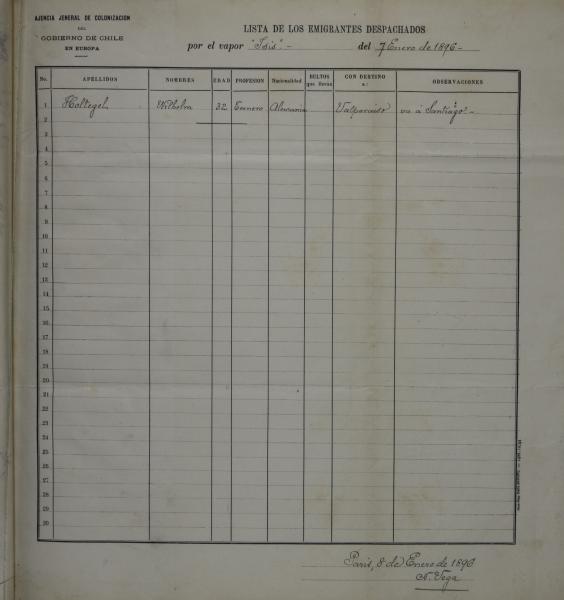 AJENCIA JENERAL DE COLONIZACION
DEL
GOBIERNO DE CHILE
EN EUROPA
LISTA DE LOS EMIGRANTES DESPACHADOS
por el vapor "Isis".- del 7 Enero de 1896-
No. APELLIDOS NOMBRES EDAD PROFESION Nacionalidad BULTOS que llevan CON DESTINO a: OBSERVACIONES
1 Holtegel, 32 Alemania Valparaiso va á Santiago-
2
3
4
5
6
7
8
9
10
11
12
13
14
15
16
17
18
19
20
21
22
23
24
25
26
27
28
29
30
Paris, 8 de Enero de 1896
N. Vega